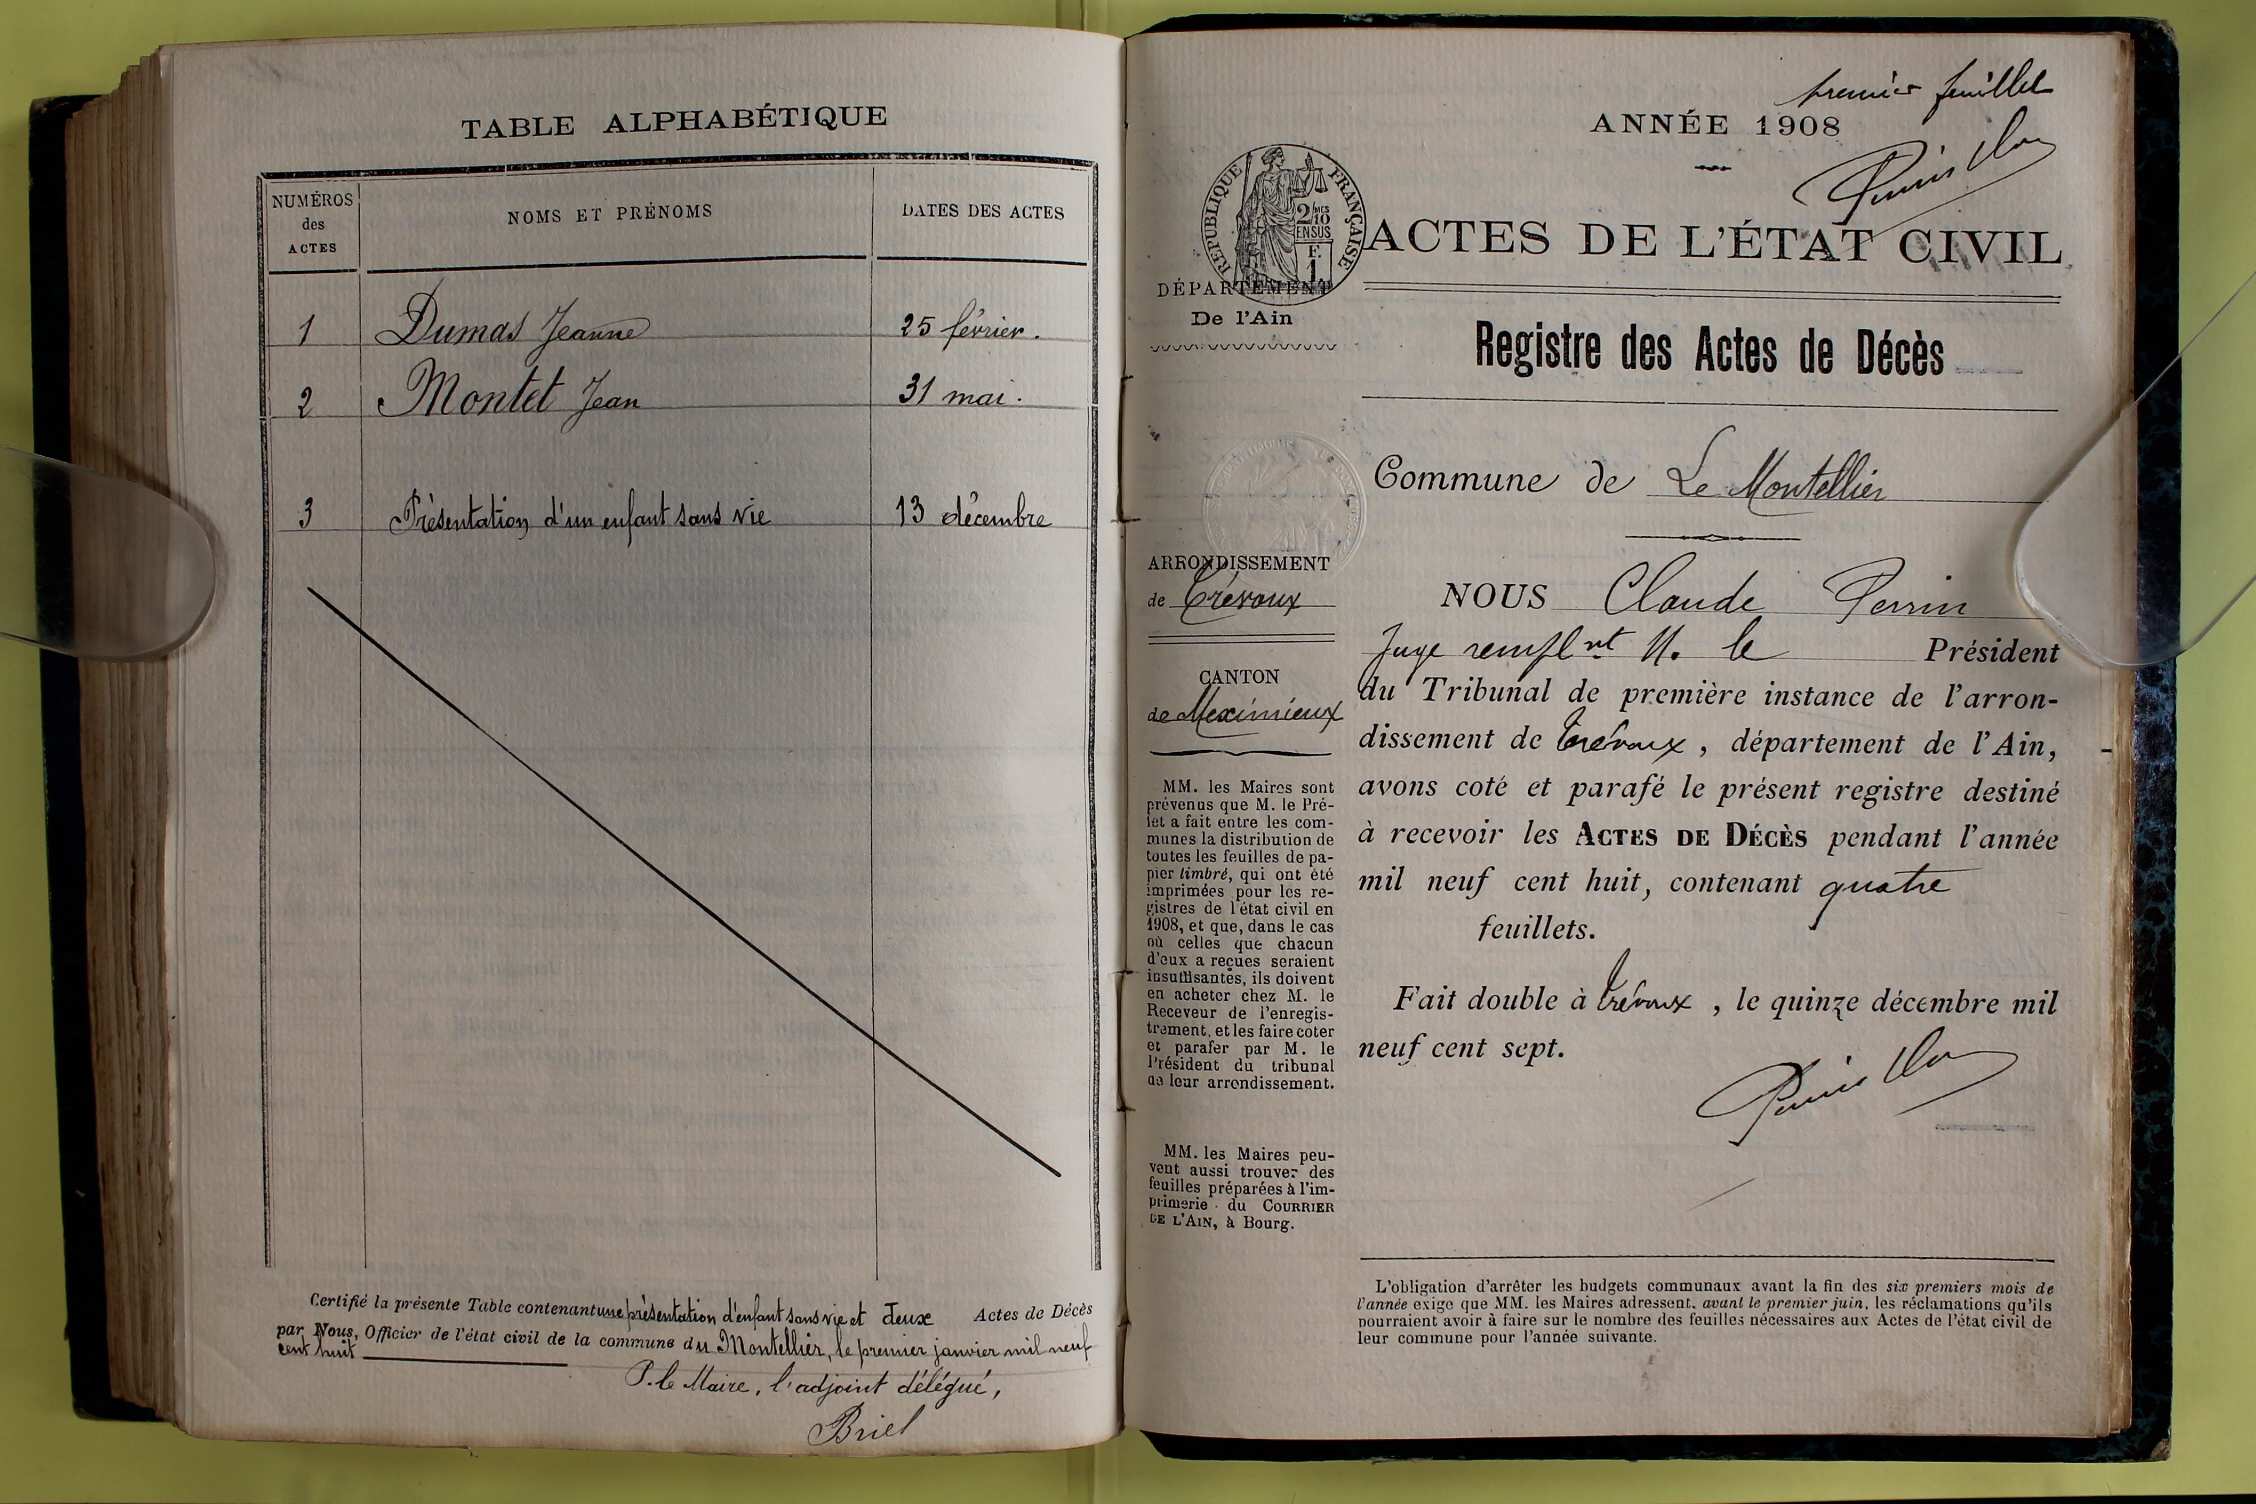 TABLE ALPHABÉTIQUE
NUMÉROS des ACTES
NOMS ET PRÉNOMS
DATES DES ACTES
1 Dumas Jeanne 25 février.
2 Montet Jean 31 mai.
3 Présentation d'un enfant sans vie 13 décembre
Certifié la présente Table contenant une présentation d'enfant sans vie et deux Actes de Décès
par Nous, Officier de l'état civil de la commune du Montellier, le premier janvier mil neuf
cent huit
P. le Maire, l'adjoint délégué,
Briel
premier feuillet
ANNÉE 1908
RÉPUBLIQUE FRANÇAISE
2/10 EN SUS
F. 1
ACTES DE L'ÉTAT CIVIL
DÉPARTEMENT
De l'Ain
Registre des Actes de Décès
Commune de Le Montellier
ARRONDISSEMENT
de Trévoux
CANTON
de Meximieux
MM. les Maires sont
prévenus que M. le Pré-
fet a fait entre les com-
munes la distribution de
toutes les feuilles de pa-
pier timbré, qui ont été
imprimées pour les re-
gistres de l'état civil en
1908, et que, dans le cas
où celles que chacun
d'eux a reçues seraient
insuffisantes, ils doivent
en acheter chez M. le
Receveur de l'enregis-
trement, et les faire coter
et parafer par M. le
Président du tribunal
de leur arrondissement.
MM. les Maires peu-
vent aussi trouver des
feuilles préparées à l'im-
primerie du COURRIER
DE L'AIN, à Bourg.
NOUS Claude Perrin
Juge rempl.nt M. le Président
du Tribunal de première instance de l'arron-
dissement de Trévoux, département de l'Ain,
avons coté et parafé le présent registre destiné
à recevoir les ACTES DE DÉCÈS pendant l'année
mil neuf cent huit, contenant quatre
feuillets.
Fait double à Trévoux, le quinze décembre mil
neuf cent sept.
L'obligation d'arrêter les budgets communaux avant la fin des six premiers mois de
l'année exige que MM. les Maires adressent, avant le premier juin, les réclamations qu'ils
pourraient avoir à faire sur le nombre des feuilles nécessaires aux Actes de l'état civil de
leur commune pour l'année suivante.